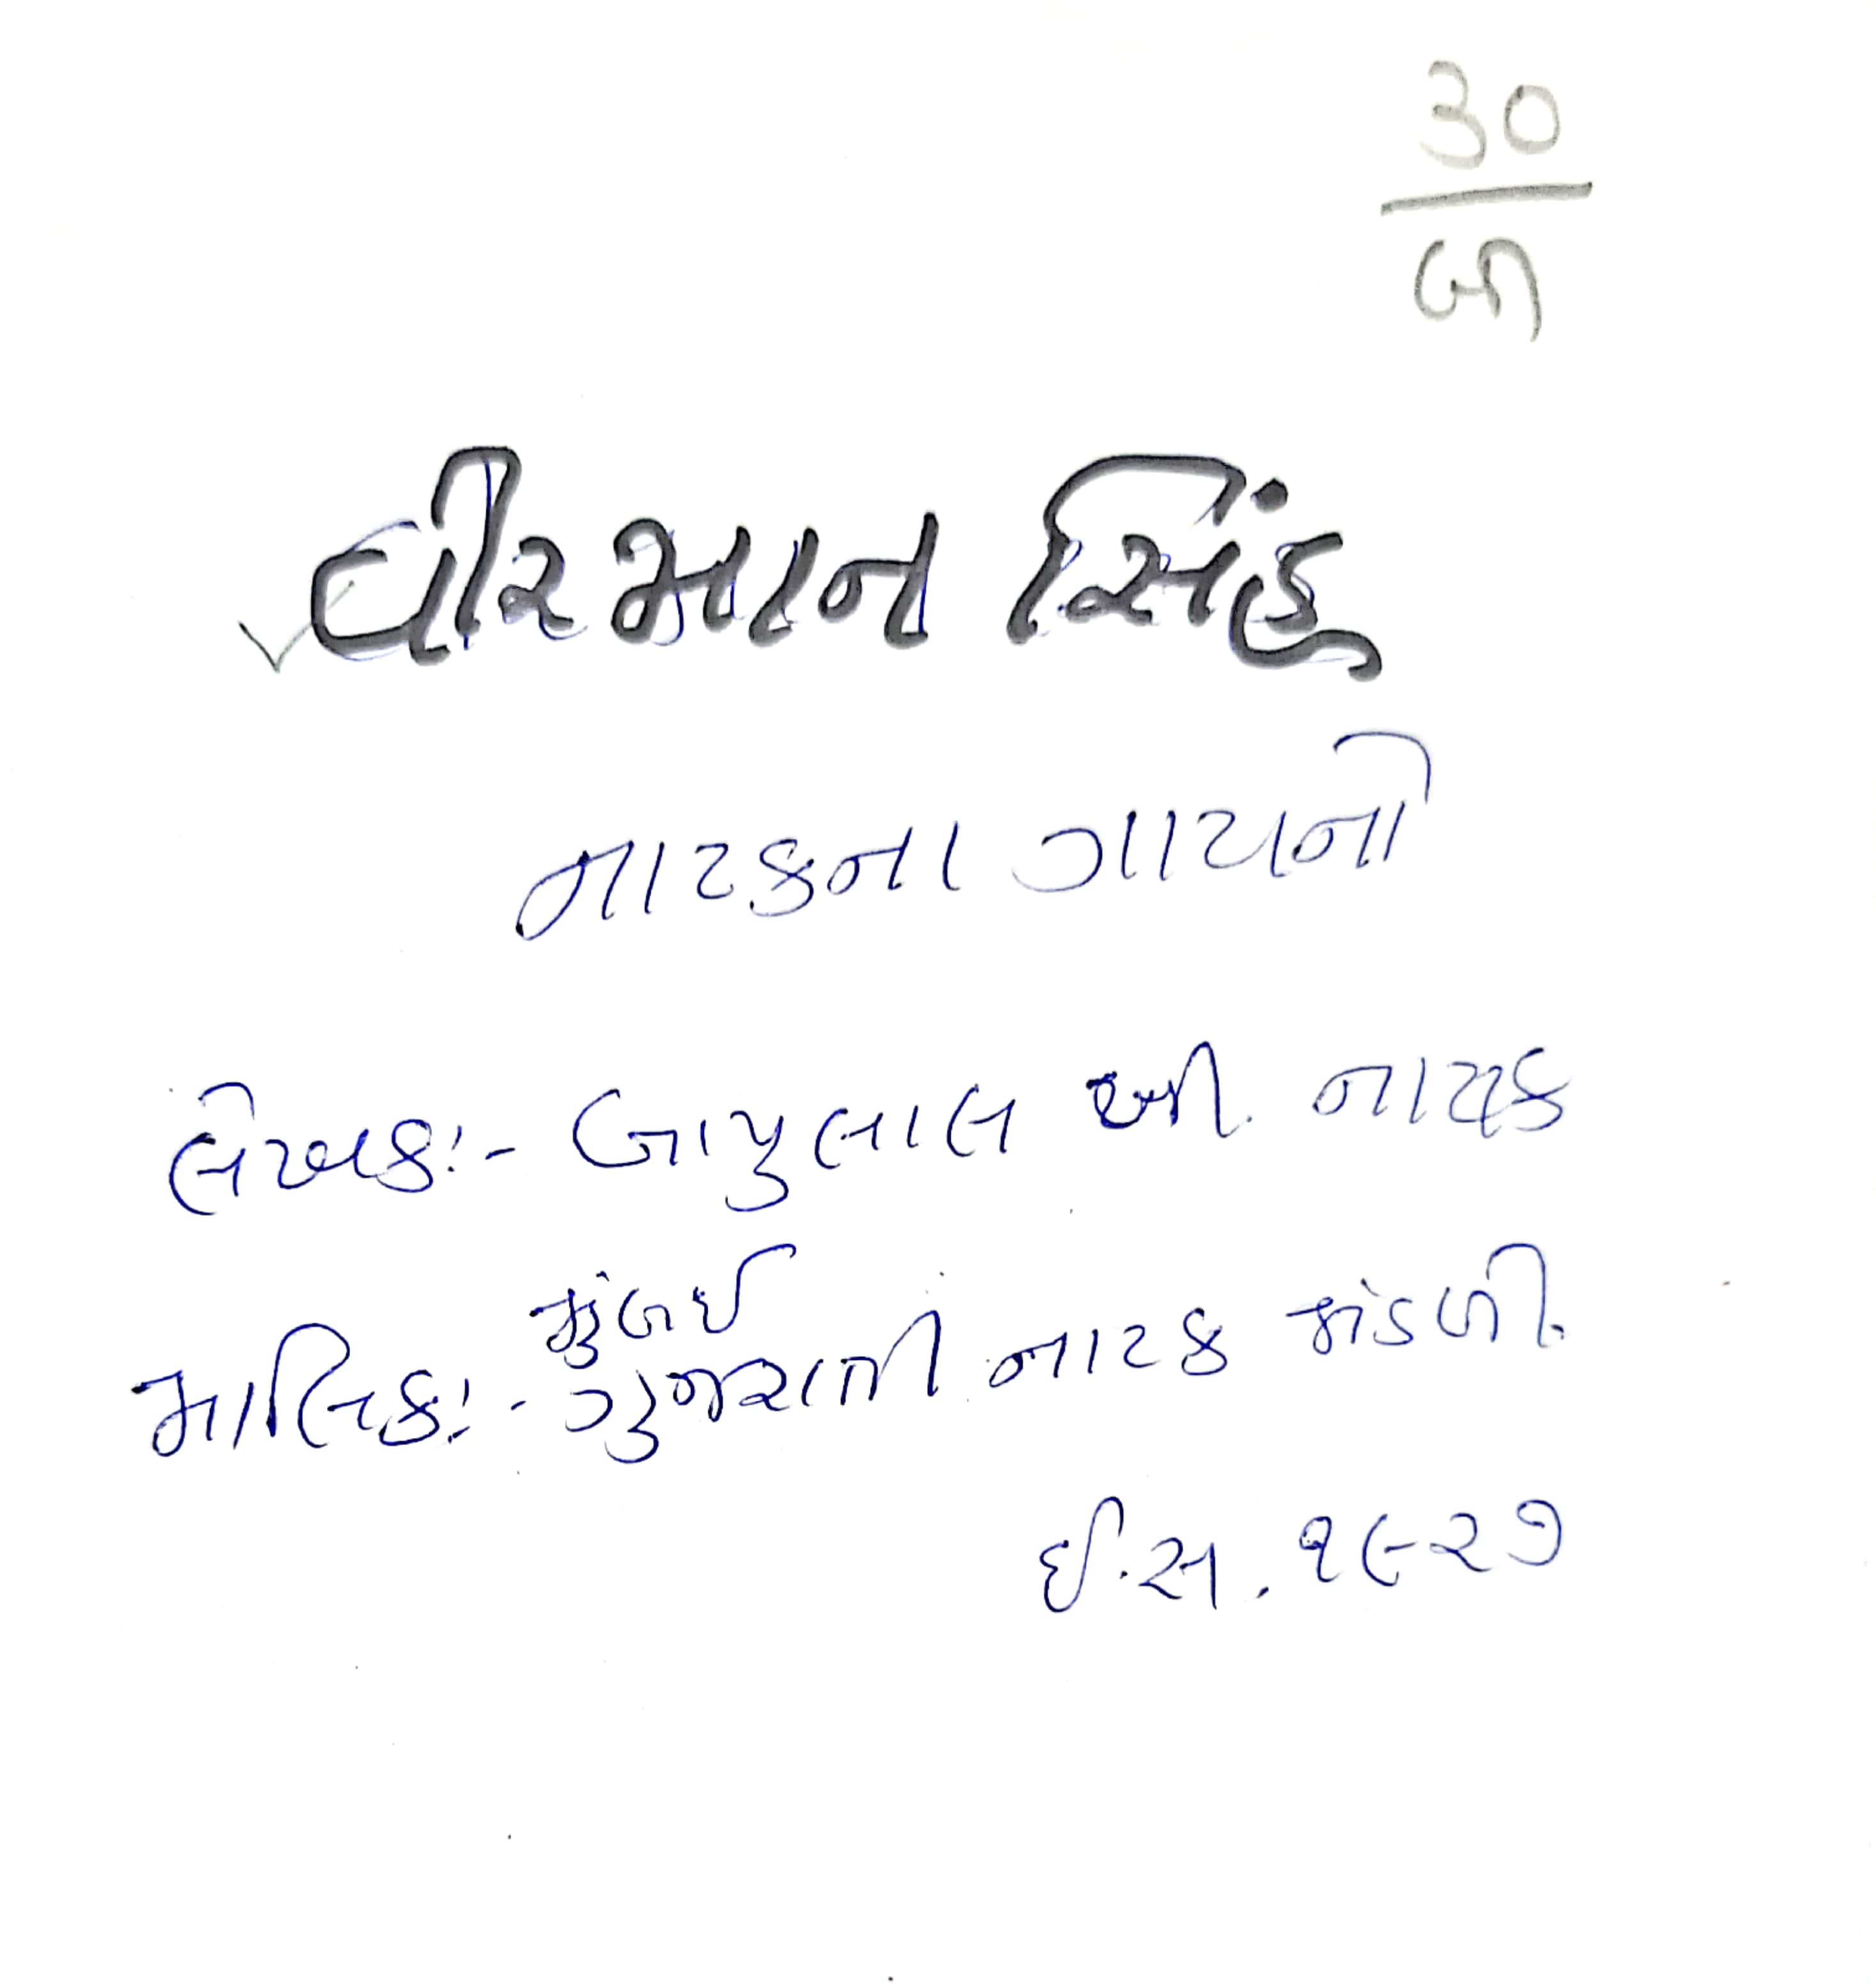 30
બી
વીરમાન સિંહ
નાટકના ગાયનો
લેખકઃ- બાપુલાલ બી. નાયક
મુંબઈ
માલિકઃ- ગુજરાતી નાટક મંડળી.
ઈ.સ. ૧૯૨૭